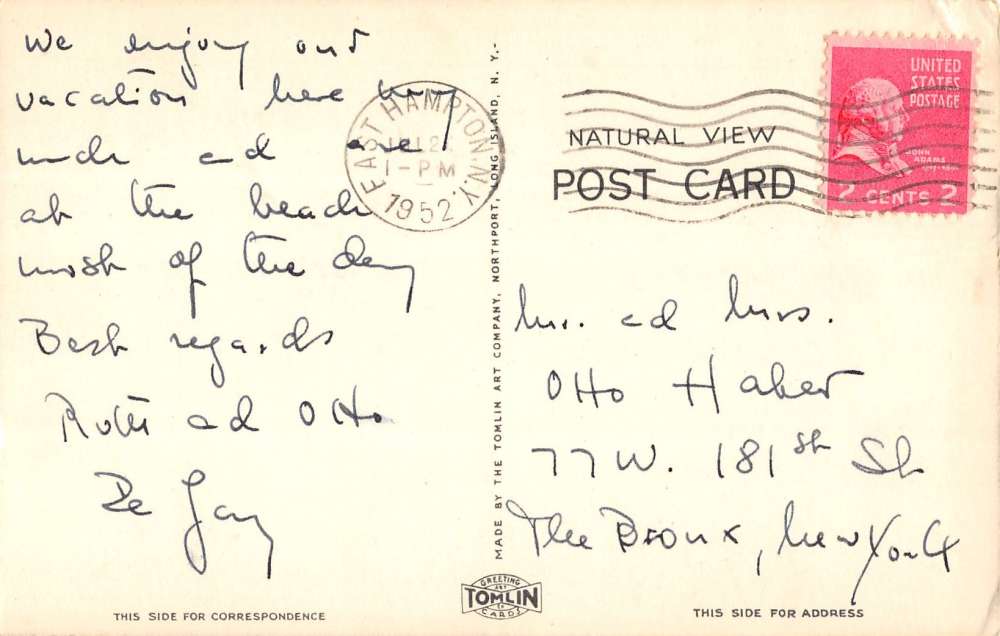 We enjoy our
vacation here very
much and are
at the beach
most of the day
Best regards
Ruth and Otto
De Jay
EAST HAMPTON, N.Y.
1-PM
1952
MADE BY THE TOMLIN ART COMPANY, NORTHPORT, LONG ISLAND, N. Y.-
NATURAL VIEW
POST CARD
UNITED
STATES
POSTAGE
JOHN
ADAMS
2 CENTS 2
Mr. and Mrs.
Otto Haber
77 W. 181st St
The Bronx, New York
GREETING
ART
TOMLIN
CARDS
THIS SIDE FOR CORRESPONDENCE
THIS SIDE FOR ADDRESS